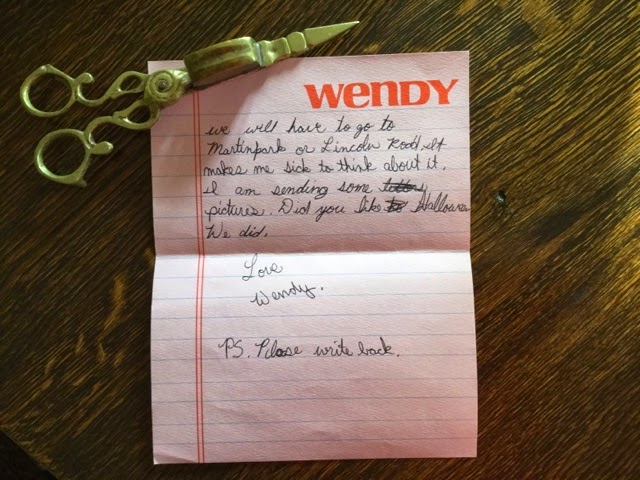 WENDY
we will have to go to
Martinpark or Lincoln Rodd. It
makes me sick to think about it.
I am sending some
pictures. Did you like to Hallowen
We did.
Love
Wendy.
PS. Please write back.